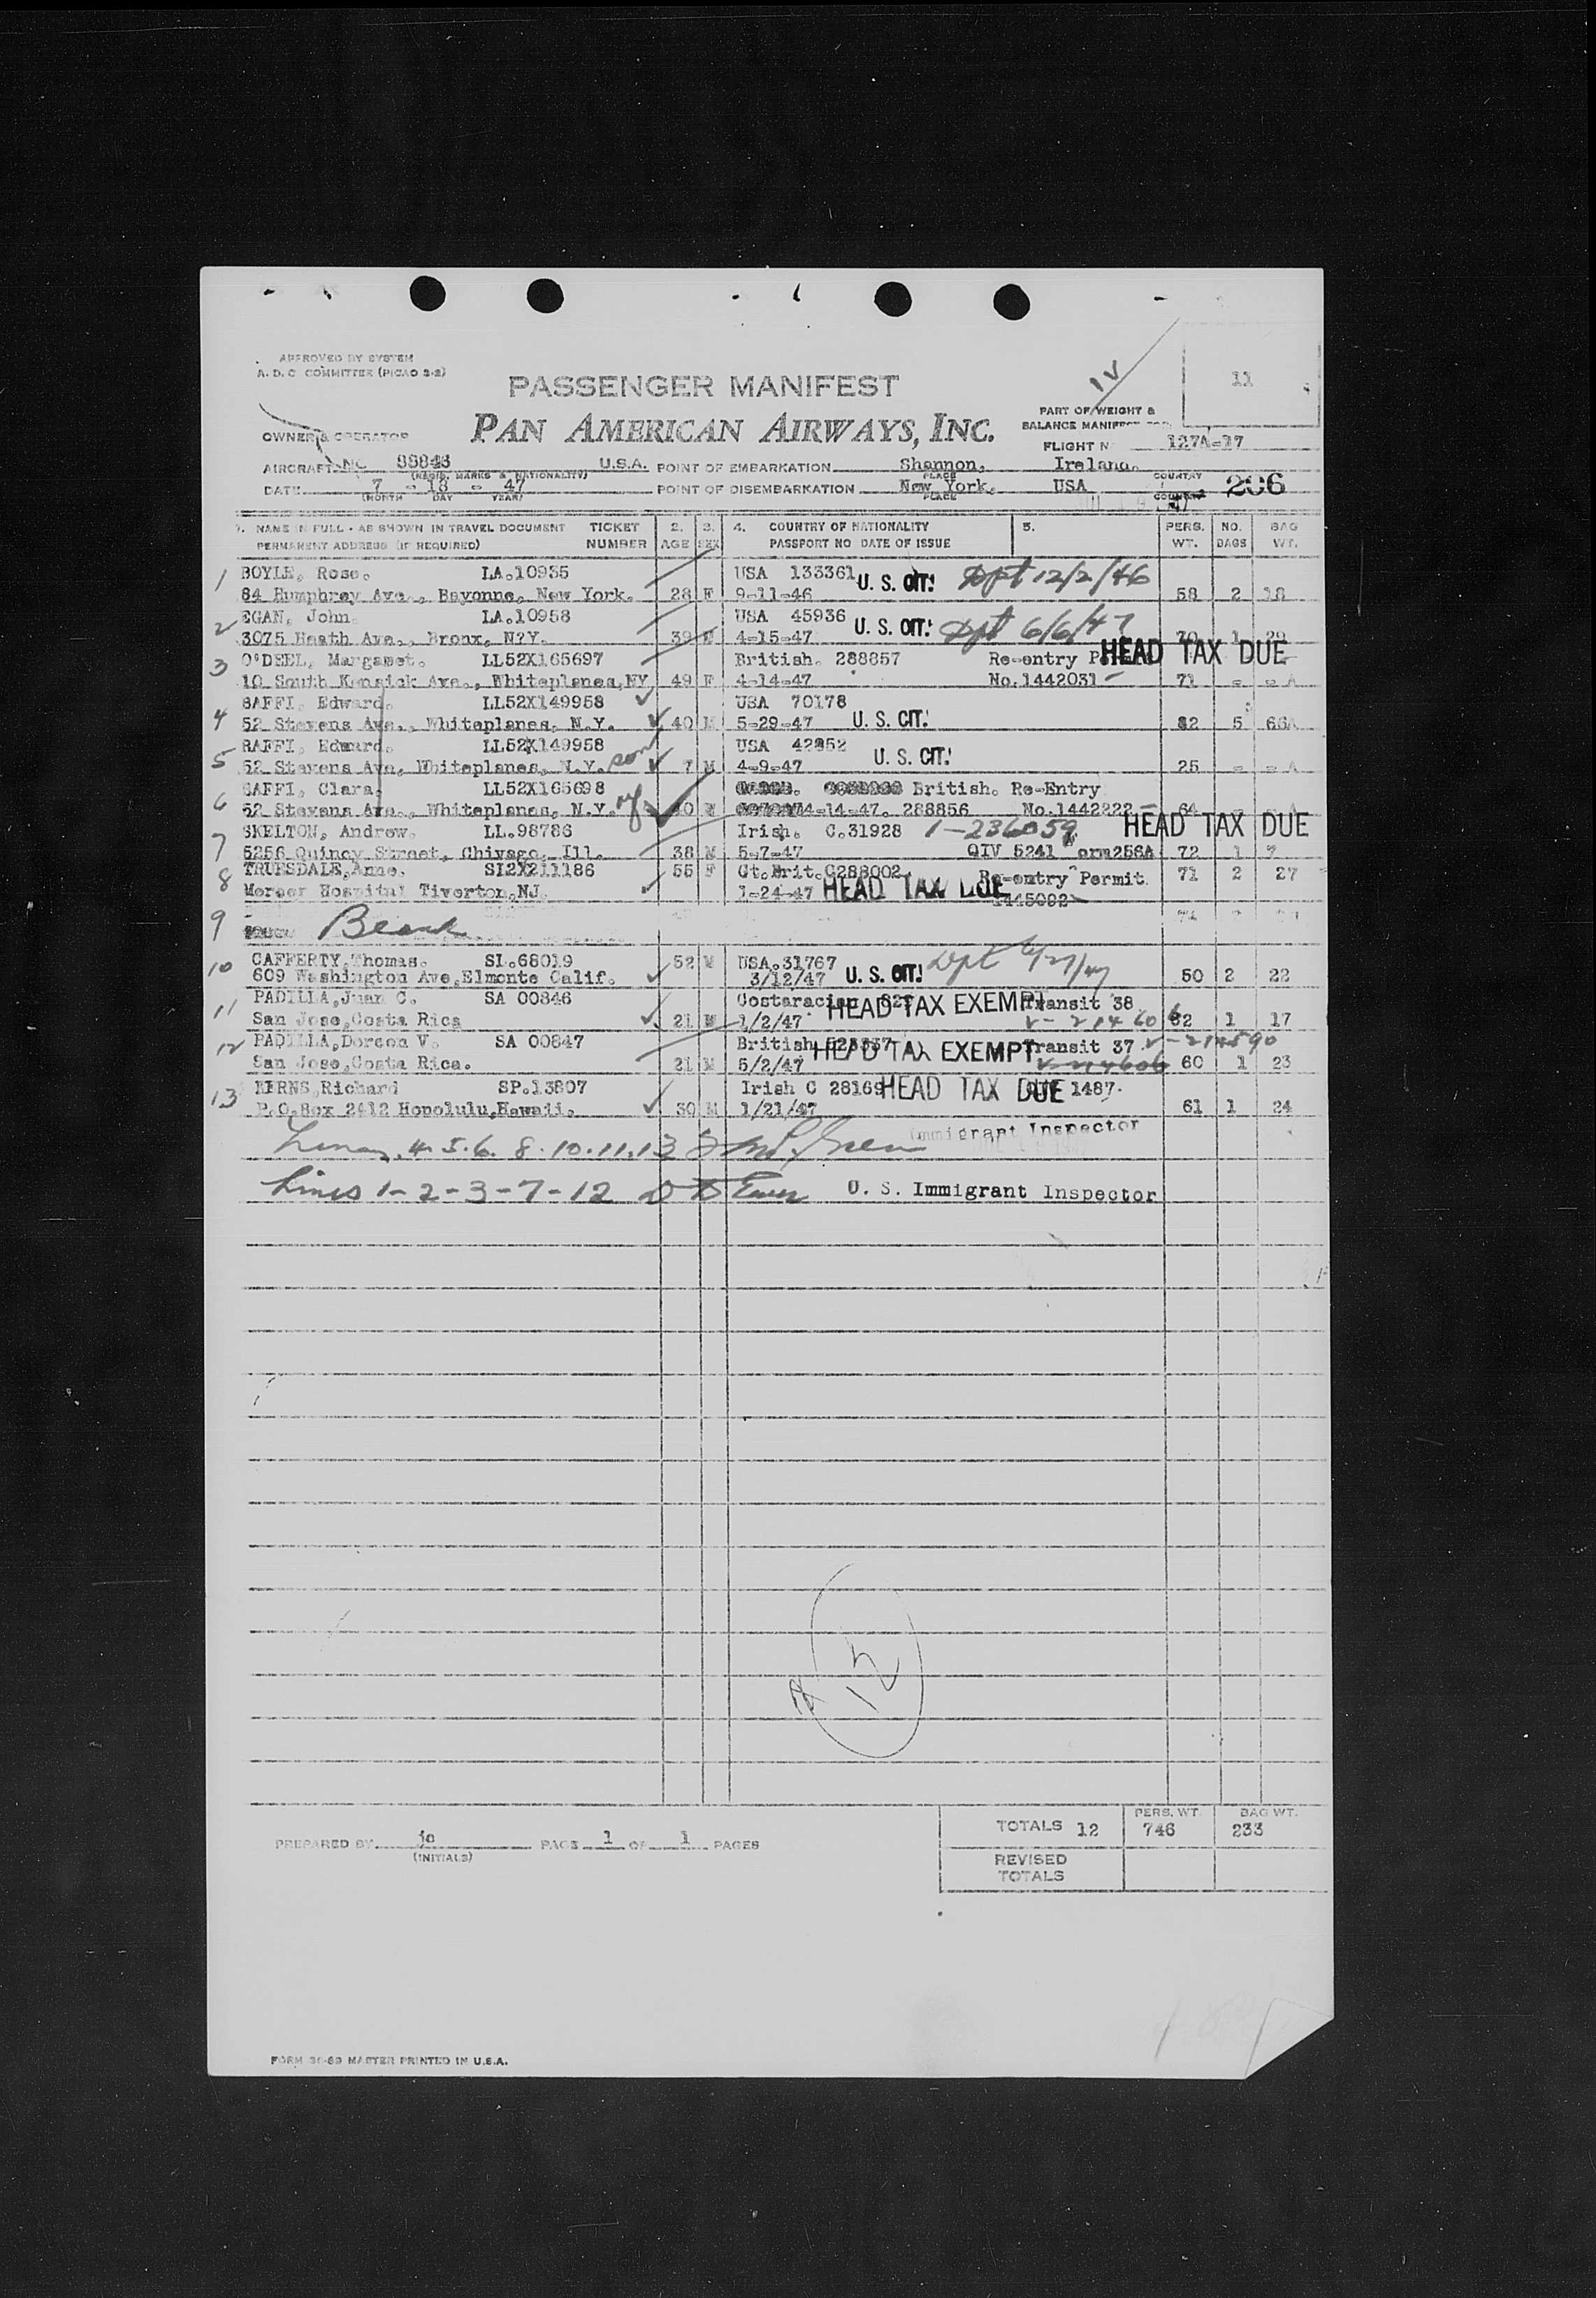 APPROVED BY SYSTEM
A. D. C COMMITTEE (PICAO 2-2)
PASSENGER MANIFEST
PAN AMERICAN AIRWAYS, INC.
IV
11
PART OF WEIGHT &
BALANCE MANIFEST
OWNER & OPERATOR
FLIGHT N 127A-17
AIRCRAFT NC 88843 U.S.A. POINT OF EMBARKATION Shannon, Ireland.
(REGIS. MARKS & NATIONALITY) PLACE COUNTRY
DATE 7 - 18 - 47 POINT OF DISEMBARKATION New York. USA 206
(MONTH DAY YEAR) PLACE COUNTRY
1. NAME IN FULL - AS SHOWN IN TRAVEL DOCUMENT TICKET 2. 3. 4. COUNTRY OF NATIONALITY 5. PERS. NO. BAG
PERMANENT ADDRESS (IF REQUIRED) NUMBER AGE SEX PASSPORT NO DATE OF ISSUE WT. BAGS WT.
1 BOYLE, Rose. LA.10935 USA 133361 U. S. CIT. Dpt 12/2/46
84 Humphrey Ave., Bayonne, New York. 28 F 9-11-46 58 2 18
2 EGAN, John. LA.10958 USA 45936 U. S. CIT. Dpt 6/6/47
3075 Heath Ave., Bronx, N?Y. 39 M 4-15-47 70 1 29
3 O'DEEL, Margaret. LL52X165697 British. 288857 Re-entry HEAD TAX DUE
10 South Kensick Ave., Whiteplanes, NY 49 F 4-14-47 No.1442031 71 - - A
4 SAFFI, Edward. LL52X149958 USA 70178
52 Stevens Ave., Whiteplanes, N.Y. 40 M 5-29-47 U. S. CIT. 82 5 66A
5 RAFFI, Edward. LL52X149958 USA 42852 U. S. CIT.
52 Stevens Ave, Whiteplanes, N.Y. son 7 M 4-9-47 25 - - A
6 SAFFI, Clara. LL52X165698 British. Re-Entry
52 Stevens Ave., Whiteplanes, N.Y. wf 4-14-47. 288856 No.1442222 64 - A
7 SKELTON, Andrew. LL.98786 Irish. C.31928 1-236059 HEAD TAX DUE
5256 Quincy Street, Chivago, Ill. 38 M 5-7-47 QIV 5241 orm256A 72 1 7
8 TRUESDALE, Anne. SI2X211186 55 F Gt.Brit.C288002 Re-entry Permit. 71 2 27
Mercer Hospital Tiverton, NJ. 1-24-47 HEAD TAX DUE 1445092
9 Blank
10 CAFFERTY, Thomas. SI.68019 52 M USA.31767 Dpt 6/27/47
609 Washington Ave, Elmonte Calif. 3/12/47 U. S. CIT. 50 2 22
11 PADILLA, Juan C. SA 00846 Costaracian HEAD TAX EXEMPT Transit 38
San Jose, Costa Rica 21 M 1/2/47 V-214606 82 1 17
12 PADILLA, Doreen V. SA 00847 British HEAD TAX EXEMPT Transit 37 V-214590
San Jose, Costa Rica. 21 M 5/2/47 60 1 23
13 KERNS, Richard SP.13807 Irish C 28169 HEAD TAX DUE 1487.
P.O.Box 2412 Honolulu, Hawaii. 30 M 1/21/47 61 1 24
Lines 4. 5. 6. 8. 10. 11. 13 Immigrant Inspector
Lines 1-2-3-7-12 U. S. Immigrant Inspector
12
TOTALS 12 PERS. WT. 746 BAG WT. 233
PREPARED BY jc PAGE 1 OF 1 PAGES
(INITIALS)
REVISED
TOTALS
FORM 31-89 MASTER PRINTED IN U.S.A.